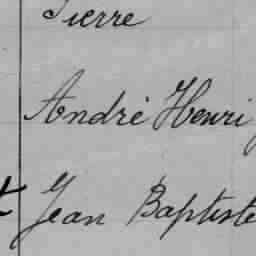 Pierre
André Henri
Jean Baptiste